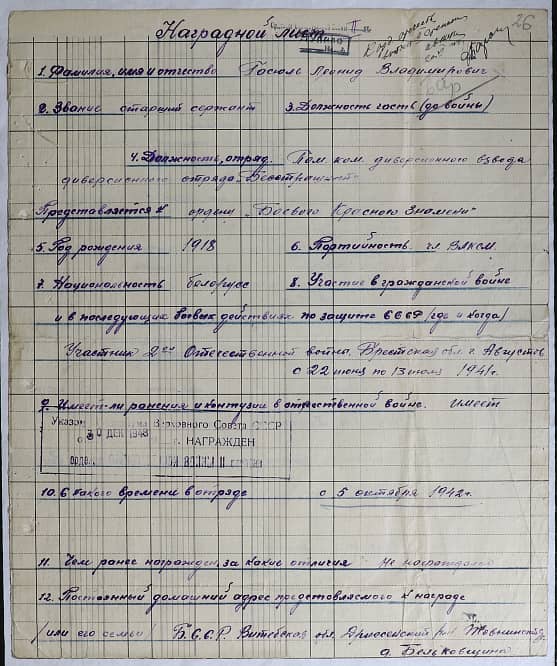 26
Наградной лист
1. Фамилия, имя и отчество Гасюль Леонид Владимирович
2. Звание старший сержант 3. Должность часть (до войны)
4. Должность, отряд. Пом. ком. диверсионного взвода
диверсионного отряда „Бесстрашный"
Представляется к ордену „Боевого Красного Знамени"
5. Год рождения 1918 6. Партийность чл ВЛКСМ.
7. Национальность белорусс 8. Участие в гражданской войне
и в последующих боевых действиях по защите СССР (где и когда)
Участник 2ой Отечественной война. Брестская обл. г. Августов
с 22 июня по 13 июля 1941г.
9. Имеет-ли ранения и контузии в отечественной войне. Имеет
Указом Верховного Совета СССР
30 ДЕК 1948 г. НАГРАЖДЕН
орде ВОЙНЫ II степени
10. С какого времени в отряде с 5 октября 1942г.
11. Чем ранее награжден, за какие отличия Не награждался
12. Постоянный домашний адрес представляемого к награде
/или его семьи/ Б.С.С.Р. Витебская обл.
д. Бельковщина